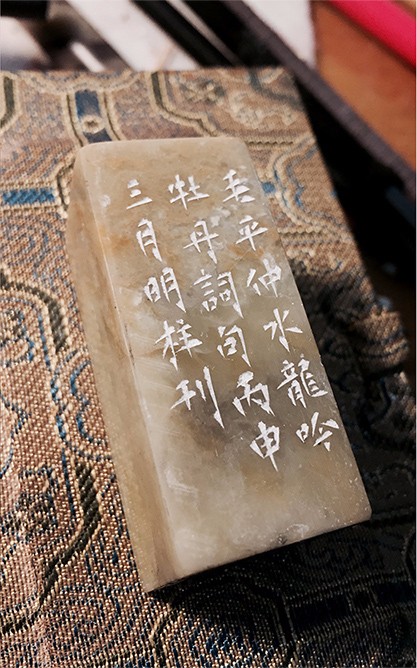 毛平仲水龍吟
牡丹詞句丙申
三月明样刊